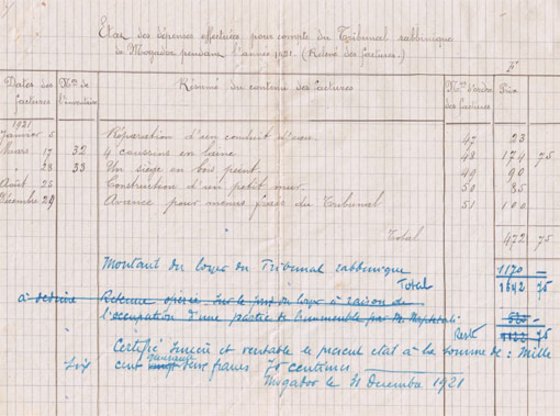 Etat des dépenses effectuées pour compte du Tribunal rabbinique
de Mogador pendant l'année 1921. (Relevé des factures.)
Dates des factures | Nos de l'inventaire | Résumé du contenu des factures | Nos d'ordre des factures | Prix
1921
Janvier 5 | Réparation d'un conduit d'eau. | 47 | 23
Mars 17 | 32 | 4 coussins en laine | 48 | 174 75
" 28 | 33 | Un siège en bois peint. | 49 | 90
Août 25 | Construction d'un petit mur. | 50 | 85
Décembre 29 | Avance pour menus frais du Tribunal | 51 | 100
Total | 472 75
Montant du loyer du Tribunal rabbinique | 1170 —
Total | 1642 75
à déduire Retenue opérée sur le du loyer à raison de
l'occupation d'une partie de l'immeuble par M.
Reste
Certifié sincère et véritable le présent état à la somme de : Mille
six cent quarante deux francs 75 centimes
Mogador le 31 Décembre 1921